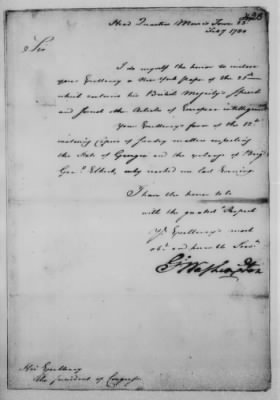 426
Head Quarters Morris Town
Feby 1780
Sir
I do myself the honor to inclose
your Excellency a New York paper of the 22nd
which contains his British Majesty's Speech
and some other Articles of European intelligence
Your Excellency's favor of the 12th
inclosing Copies of sundry matters respecting
the State of Georgia and the exchange of Brigr
Genl Elbert, only reached me last Evening
I have the honor to be
with the greatest Respect
Yr Excellency's most
obt and humble Servt
Go Washington
His Excellency
The president of Congress